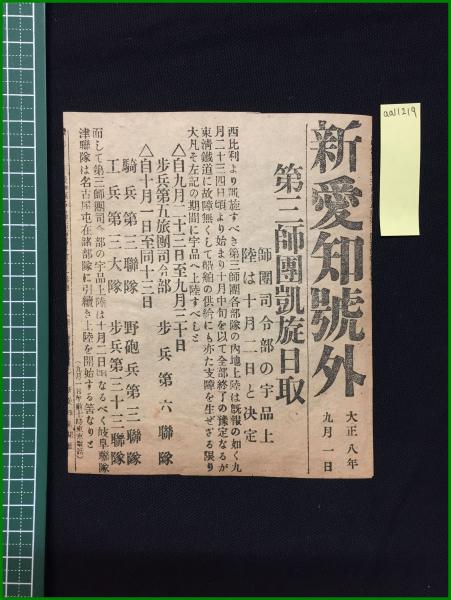 新愛知號外
大正八年
九月一日
第三師團凱旋日取
師團司令部の宇品上
陸は十月二日と決定
西比利より凱旋すべき第三師團各部隊の內地上陸は既報の如く九
月二十三四日頃より始まり十月中旬を以て全部終了の豫定なるが
東淸鐵道に故障無くして船舶の供給にも亦た支障を生ぜざる限り
大凡そ左記の期間に宇品へ上陸すべしと
△自九月二十二日至九月三十日
步兵第五旅團司令部 步兵第六聯隊
△自十月一日至同十三日
騎兵第三聯隊 野砲兵第三聯隊
工兵第三大隊 步兵第三十三聯隊
而して第三師團司令部の宇品上陸は十月二日頃なるべく岐阜聯隊
津聯隊は名古屋屯在諸部隊に引續き上陸を開始する筈なりと
aa11219